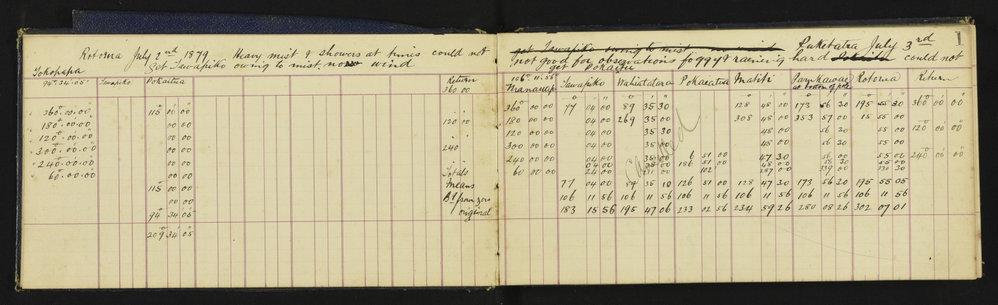 Rotorua July 2nd 1879 Heavy mist & showers at times could not
get Tawapiko owing to mist. no wind
94° 34' 05" Tawapiko Pokaitua Return
360 00
360° 00' 00" 115 00 00
180 00 00 00 00 120 00
120 00 00 00 00
300 00 00 00 00 240
240 00 00 00 00
60 00 00 00 00 Totals
115 00 00 Means
00 00 Bg from zero
94 34 05 original
209 34 05
1
got Tawapiko owing to mist no wind Puketutu July 3rd
not good for observations foggy & raining hard could not
get Pokaitu
106° 11' 56"
Manawahe Tawapiko Pokaeatua Matiti Rotorua Return
at bottom of pole
360 00 00 77 04 00 89 35 30 128 48 00 173 56 30 195 55 30 360 00 00
180 00 00 04 00 269 35 00 308 48 00 353 57 00 15 55 00
120 00 00 04 00 35 30 48 00 56 30 55 00 120 00 00
300 00 00 04 00 35 00 48 00 56 30 55 00
240 00 00 04 00 35 00 6 51 00 47 30 56 00 55 00 240 00 00
60 00 00 186 51 00
77 04 00 89 35 10 126 51 00 128 47 30 173 56 30 195 55 05
106 11 56 106 11 56 106 11 56 106 11 56 106 11 56 106 11 56
183 15 56 195 47 06 233 02 56 234 59 26 280 08 26 302 07 01